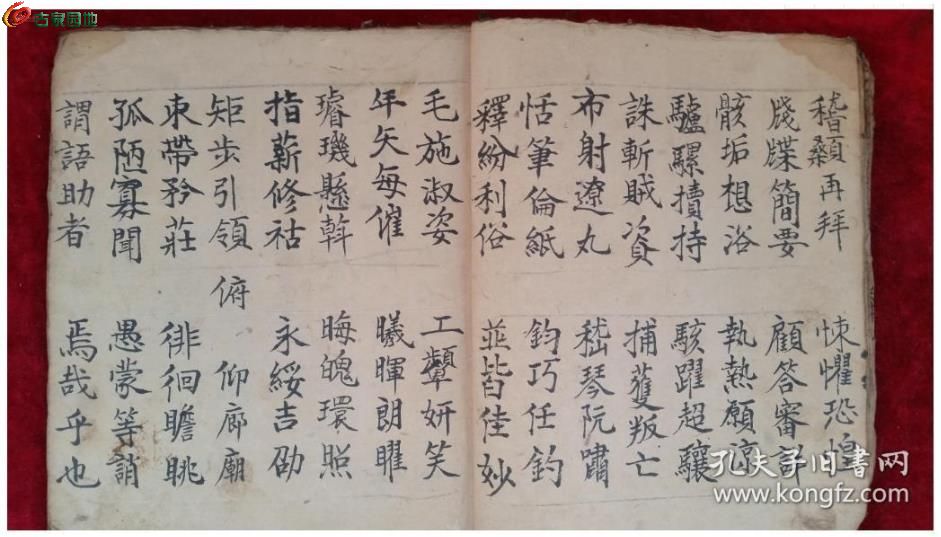 稽顙再拜 悚懼恐惶
牋牒簡要 顧答審詳
骸垢想浴 執熱願涼
驢騾犢持 駭躍超驤
誅斬賊資 捕獲叛亡
布射遼丸 嵇琴阮嘯
恬筆倫紙 鈞巧任釣
釋紛利俗 並皆佳妙
毛施淑姿 工顰妍笑
年矢每催 曦暉朗曜
璿璣懸斡 晦魄環照
指薪修祜 永綏吉劭
矩步引領 俯仰廊廟
束帶矜莊 徘徊瞻眺
孤陋寡聞 愚蒙等誚
謂語助者 焉哉乎也
孔夫子旧书网
www.kongfz.com